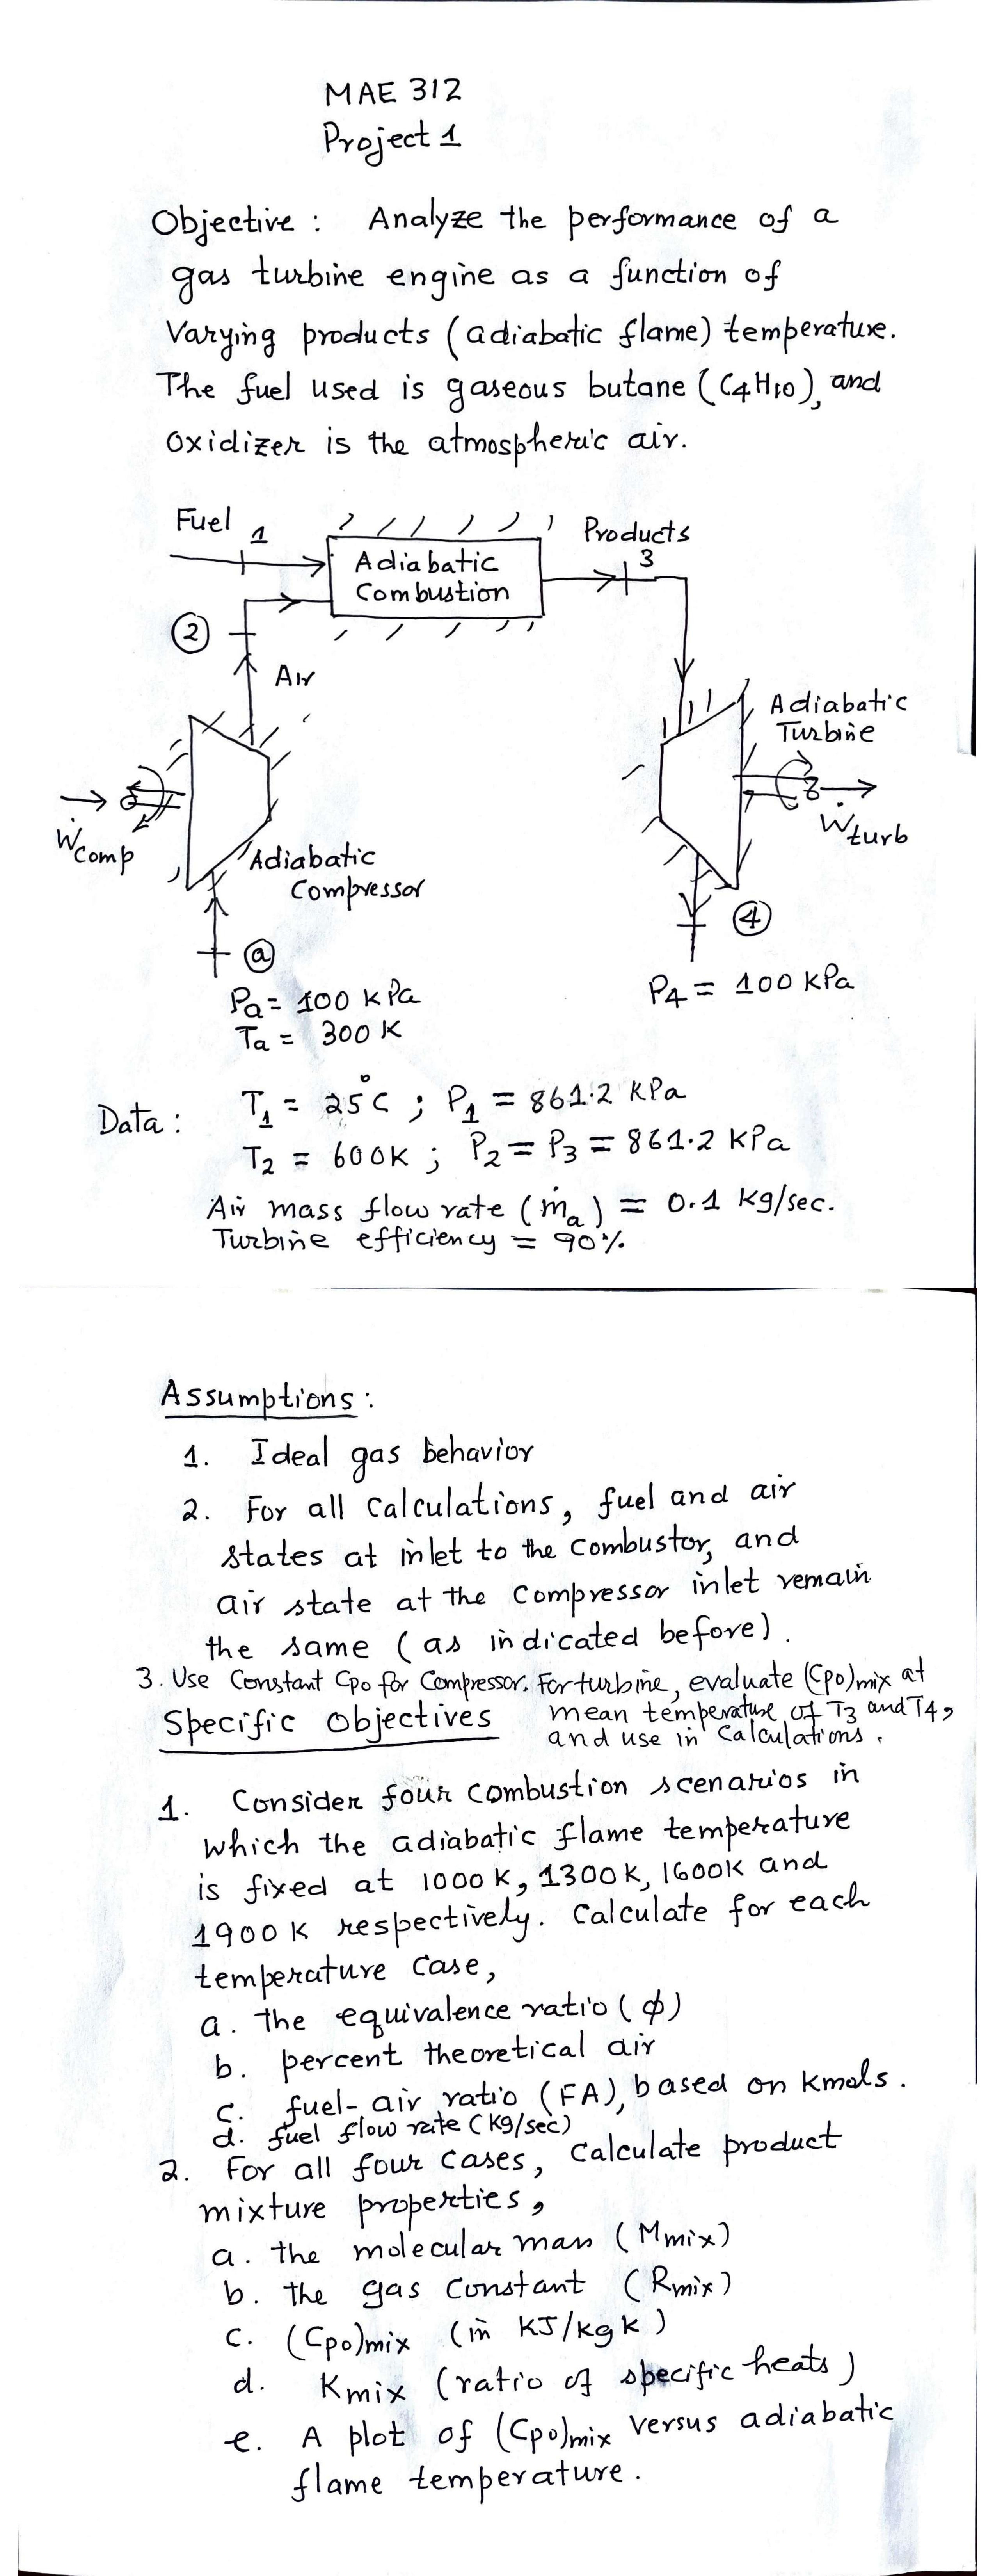 MAE 312
Project 1
Objective : Analyze the performance of a
gas turbine engine as a function of
Varying products (adiabatic flame) temperature.
The fuel used is gaseous butane (C4H10), and
Oxidizer is the atmospheric air.
Fuel
1
Adiabatic
Combustion
Products
3
2
Air
Adiabatic
Turbine
Ẇcomp
Ẇturb
Adiabatic
Compressor
a
4
Pa = 100 kPa
Ta = 300 K
P4 = 100 kPa
Data : T1 = 25°C ; P1 = 861.2 KPa
T2 = 600K ; P2 = P3 = 861.2 kPa
Air mass flow rate (ṁa) = 0.1 kg/sec.
Turbine efficiency = 90%.
Assumptions :
1. Ideal gas behavior
2. For all Calculations, fuel and air
states at inlet to the combustor, and
air state at the compressor inlet remain
the same (as indicated before).
3. Use Constant Cpo for Compressor. For turbine, evaluate (Cpo)mix at
mean temperature of T3 and T4,
and use in Calculations.
Specific Objectives
1. Consider four combustion scenarios in
which the adiabatic flame temperature
is fixed at 1000 K, 1300K, 1600K and
1900 K respectively. Calculate for each
temperature case,
a. the equivalence ratio (φ)
b. percent theoretical air
c. fuel-air ratio (FA), based on kmols.
d. fuel flow rate (kg/sec)
2. For all four cases, Calculate product
mixture properties,
a. the molecular mass (Mmix)
b. the gas constant (Rmix)
c. (Cpo)mix (in KJ/kgK)
d. Kmix (ratio of specific heats)
e. A plot of (Cpo)mix versus adiabatic
flame temperature.